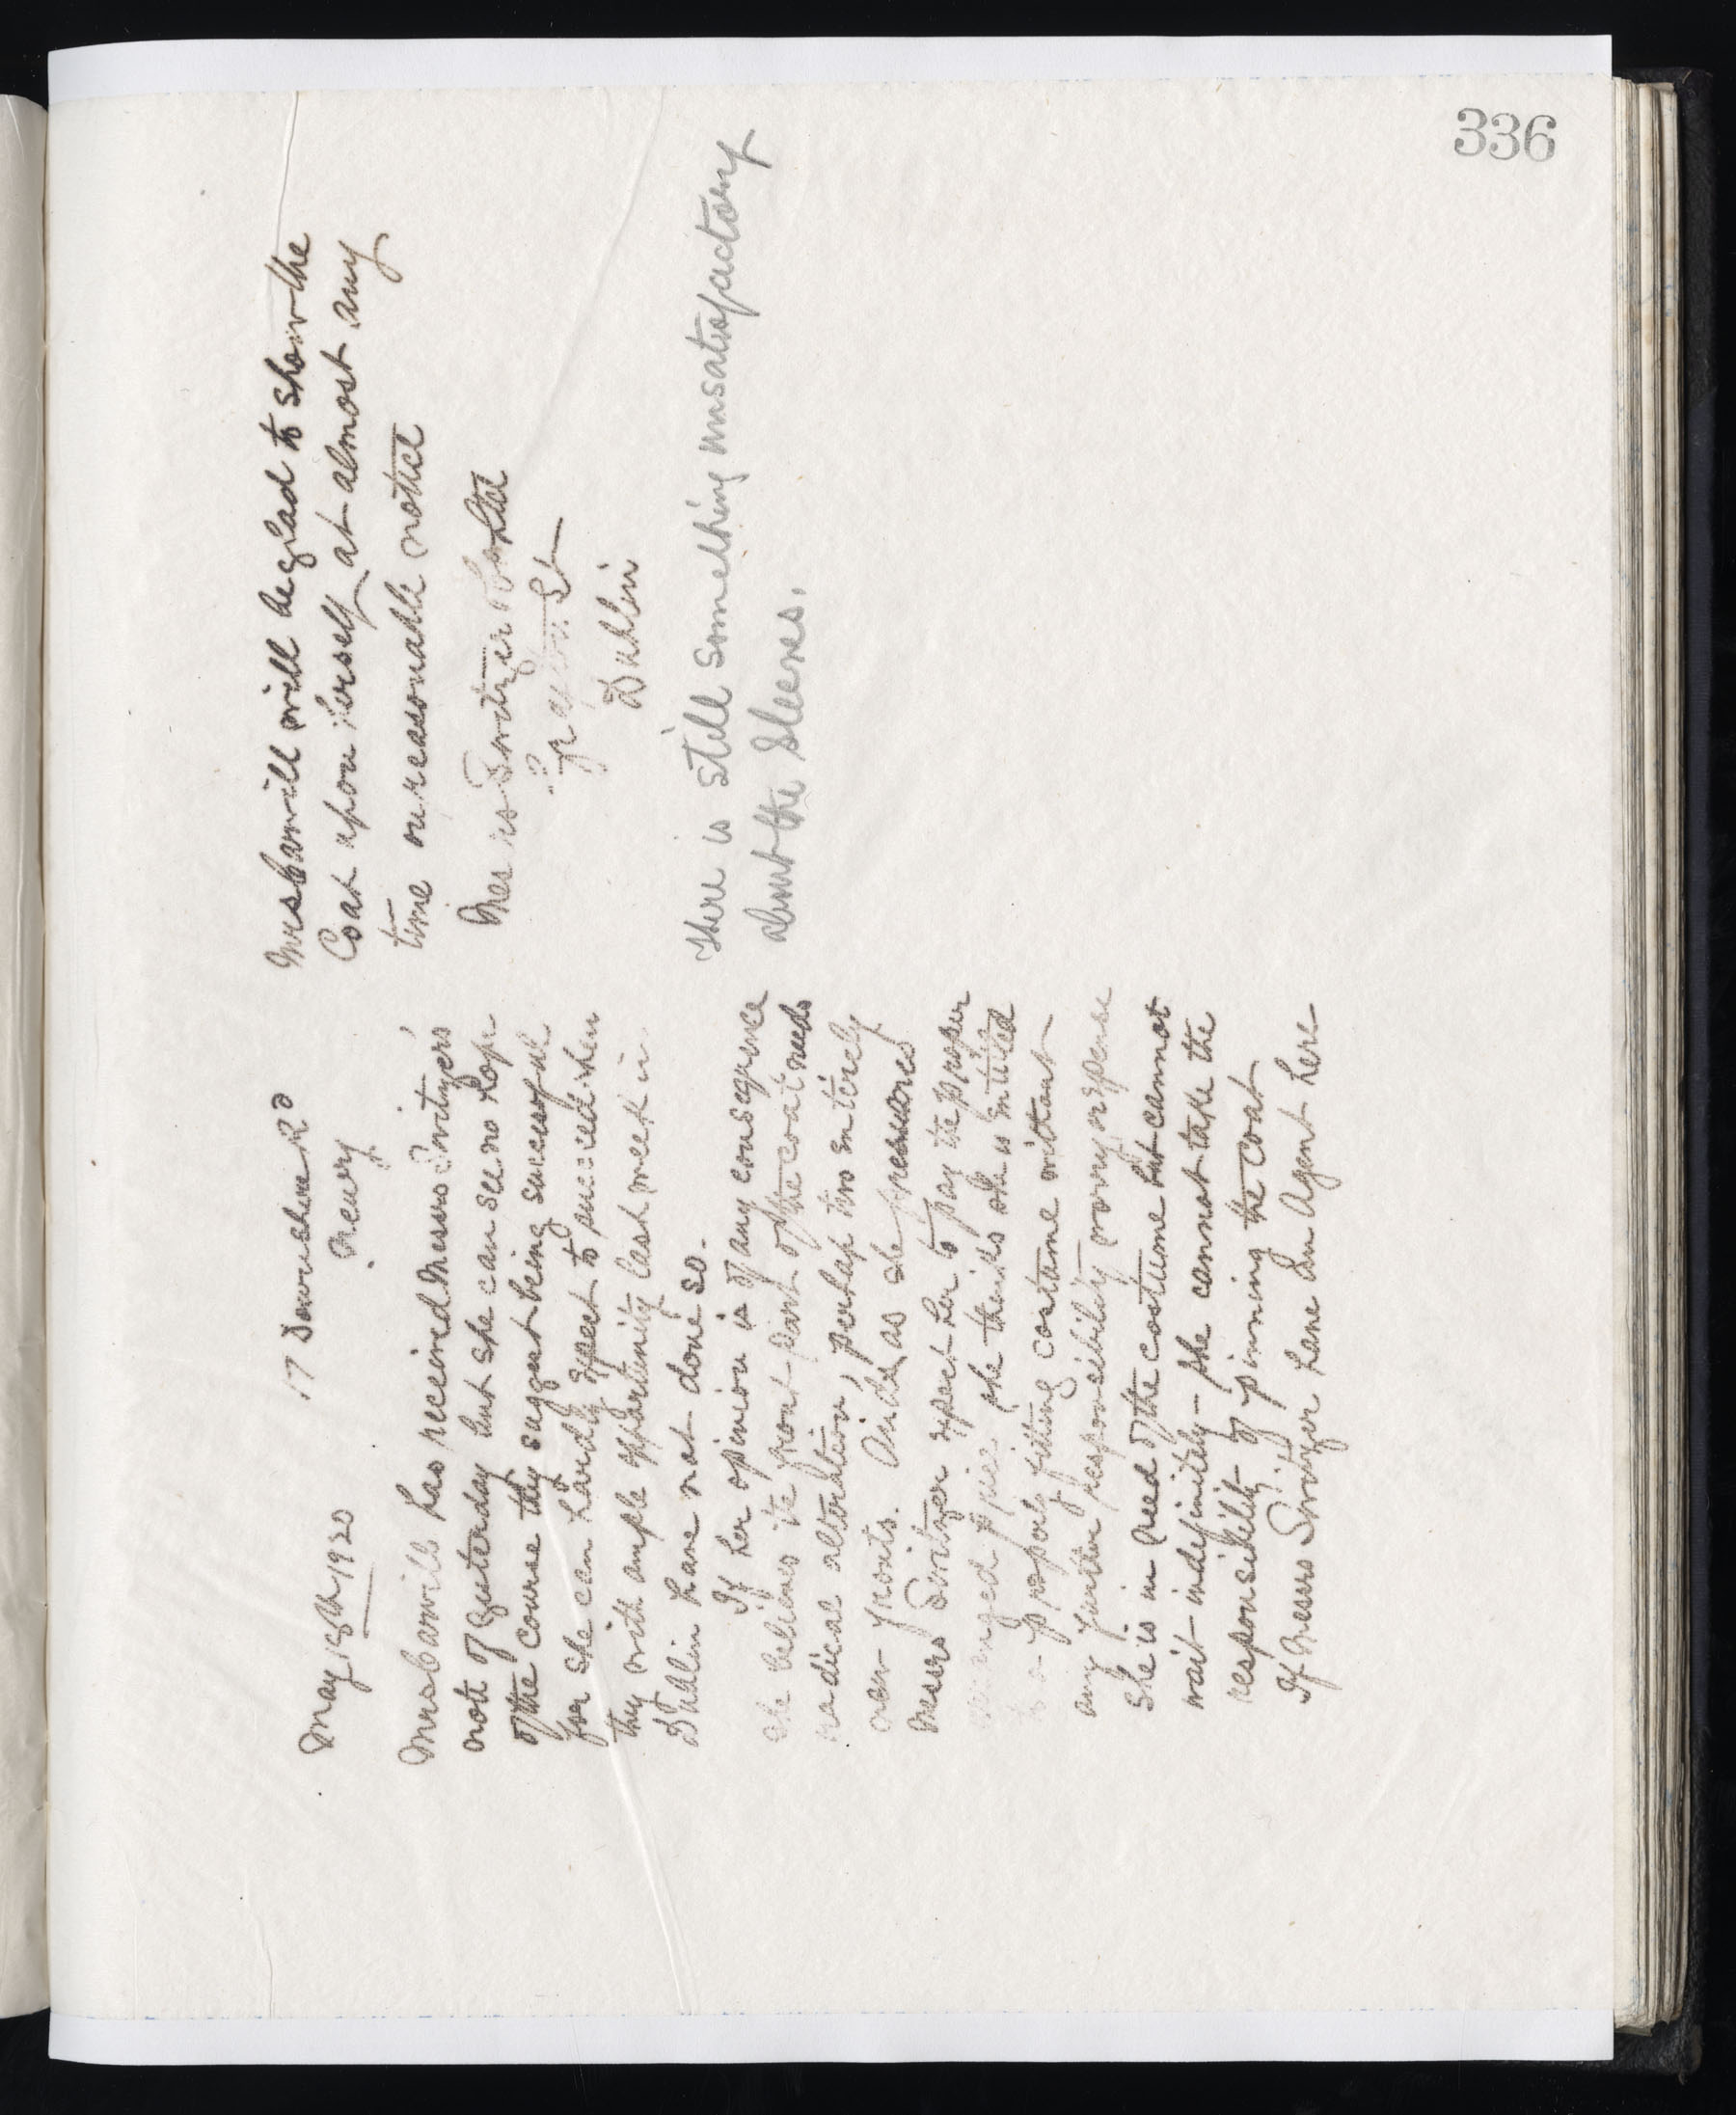 336
May 18th 1920
17 Downshire Rd
Newry
Mrs Barwill has received Messrs Switzers'
note of yesterday but she can see no hope
of the course they suggest being successful
for she can hardly expect to succeed when
they with ample opportunity last week in
Dublin have not done so.
If her opinion is of any consequence
she believes the front part of the coat needs
radical alteration, perhaps two entirely
new fronts. And, as she
Messrs Switzer expect her to pay the proper
price she thinks she is entitled
to a properly fitting costume without
any further responsibility worry or expense
She is in need of the costume but cannot
wait indefinitely – she cannot take the
responsibility of pinning the coat
If Messrs Switzer have an Agent here
Mrs Barwill will be glad to show the
Coat upon herself at almost any
time on reasonable notice
Messrs Switzer & Co Ltd
Grafton St
Dublin
There is still something unsatisfactory
about the Sleeves.